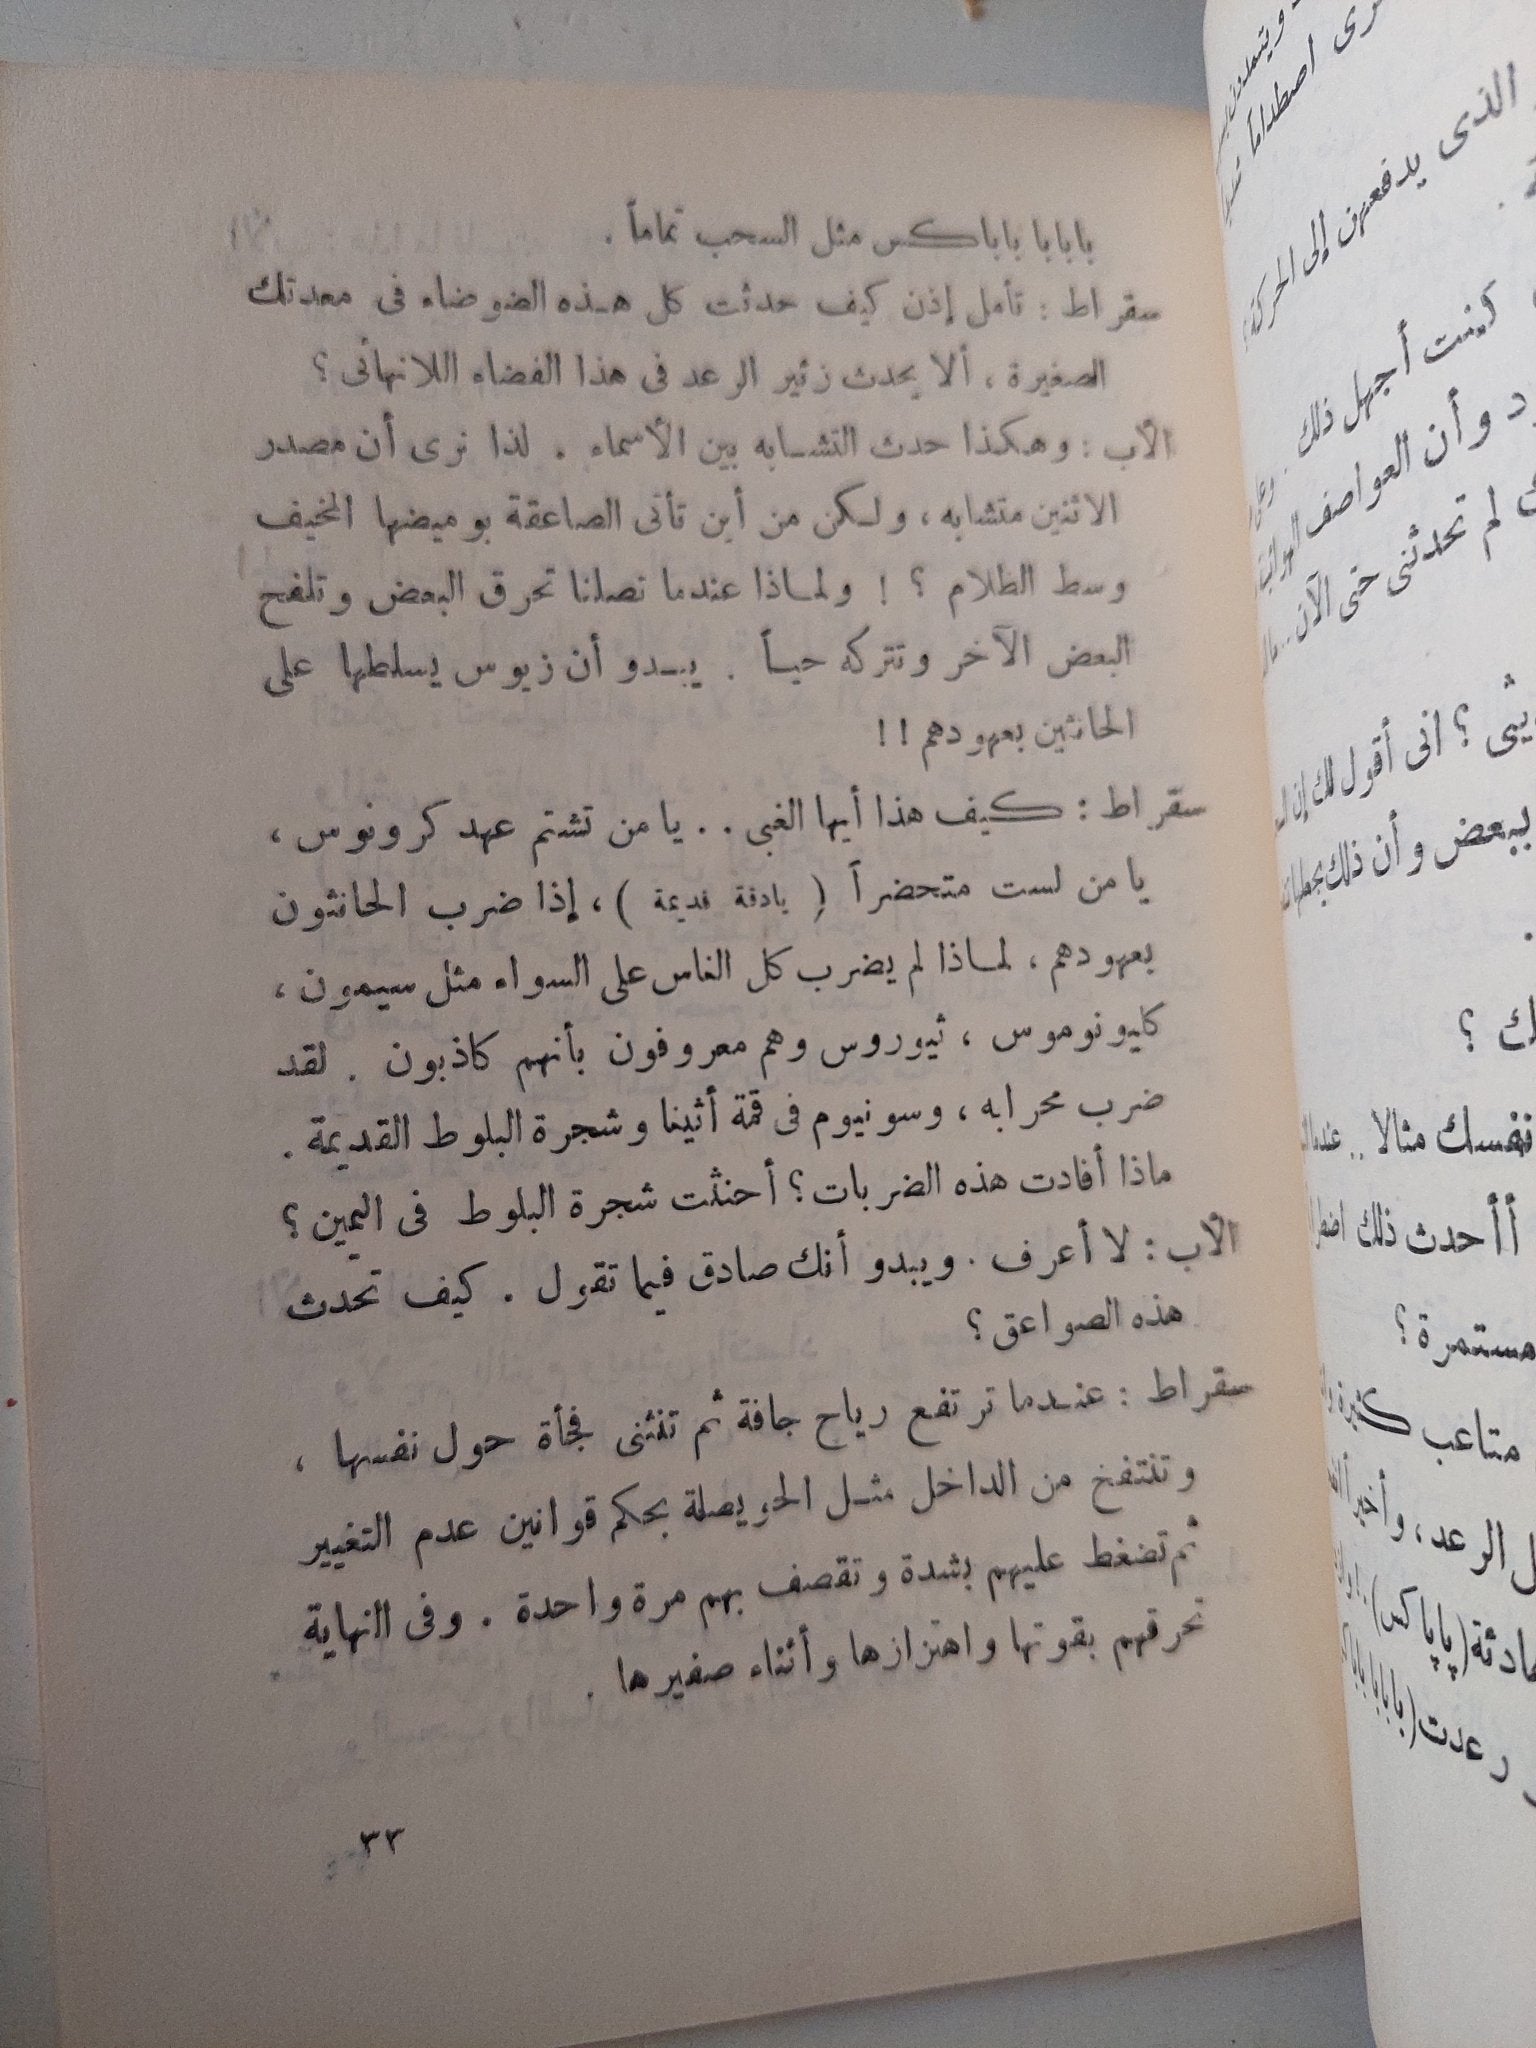 بابابا باباكس مثل السحب تماماً .
سقراط : تأمل إذن كيف حدثت كل هذه الضوضاء فى معدتك
الصغيرة ، ألا يحدث زئير الرعد فى هذا الفضاء اللانهائى ؟
الأب : وهكذا حدث التشابه بين الأسماء . لذا نرى أن مصدر
الاثنين متشابه ، ولكن من أين تأتى الصاعقة بوميضها المخيف
وسط الظلام ؟ ! ولماذا عندما تصلنا تحرق البعض وتلفح
البعض الآخر وتتركه حياً . يبدو أن زيوس يسلطها على
الحانثين بعهودهم ! !
سقراط : كيف هذا أيها الغبى . . يا من تشتم عهد كرونوس ،
يا من لست متحضراً ( بادئة قديمة ) ، إذا ضرب الحانثون
بعهودهم ، لماذا لم يضرب كل الناس على السواء مثل سيمون ،
كليونوموس ، ثيوروس وهم معروفون بأنهم كاذبون . لقد
ضرب محرابه ، وسونيوم فى قمة أثينا وشجرة البلوط القديمة .
ماذا أفادت هذه الضربات ؟ أحنثت شجرة البلوط فى اليمين ؟
الأب : لا أعرف . ويبدو أنك صادق فيما تقول . كيف تحدث
هذه الصواعق ؟
سقراط : عندما ترتفع رياح جافة ثم تنثنى فجأة حول نفسها ،
وتنتفخ من الداخل مثل الحويصلة بحكم قوانين عدم التغيير
ثم تضغط عليهم بشدة وتقصف بهم مرة واحدة . وفى النهاية
تحرقهم بقوتها واهتزازها وأثناء صفيرها .
٣٣
الذى يدفعهن إلى الحركة
كنت أجهل ذلك
وأن العواصف الهوائية
لم تحدثنى حتى الآن . .
؟ انى أقول لك إن
ببعض وأن ذلك يجعلها
؟
نفسك مثالا . . عندما
أأحدث ذلك
مستمرة ؟
متاعب كثيرة
الرعد ، وأخيراً
(پاپاكس)
رعدت (بابابا